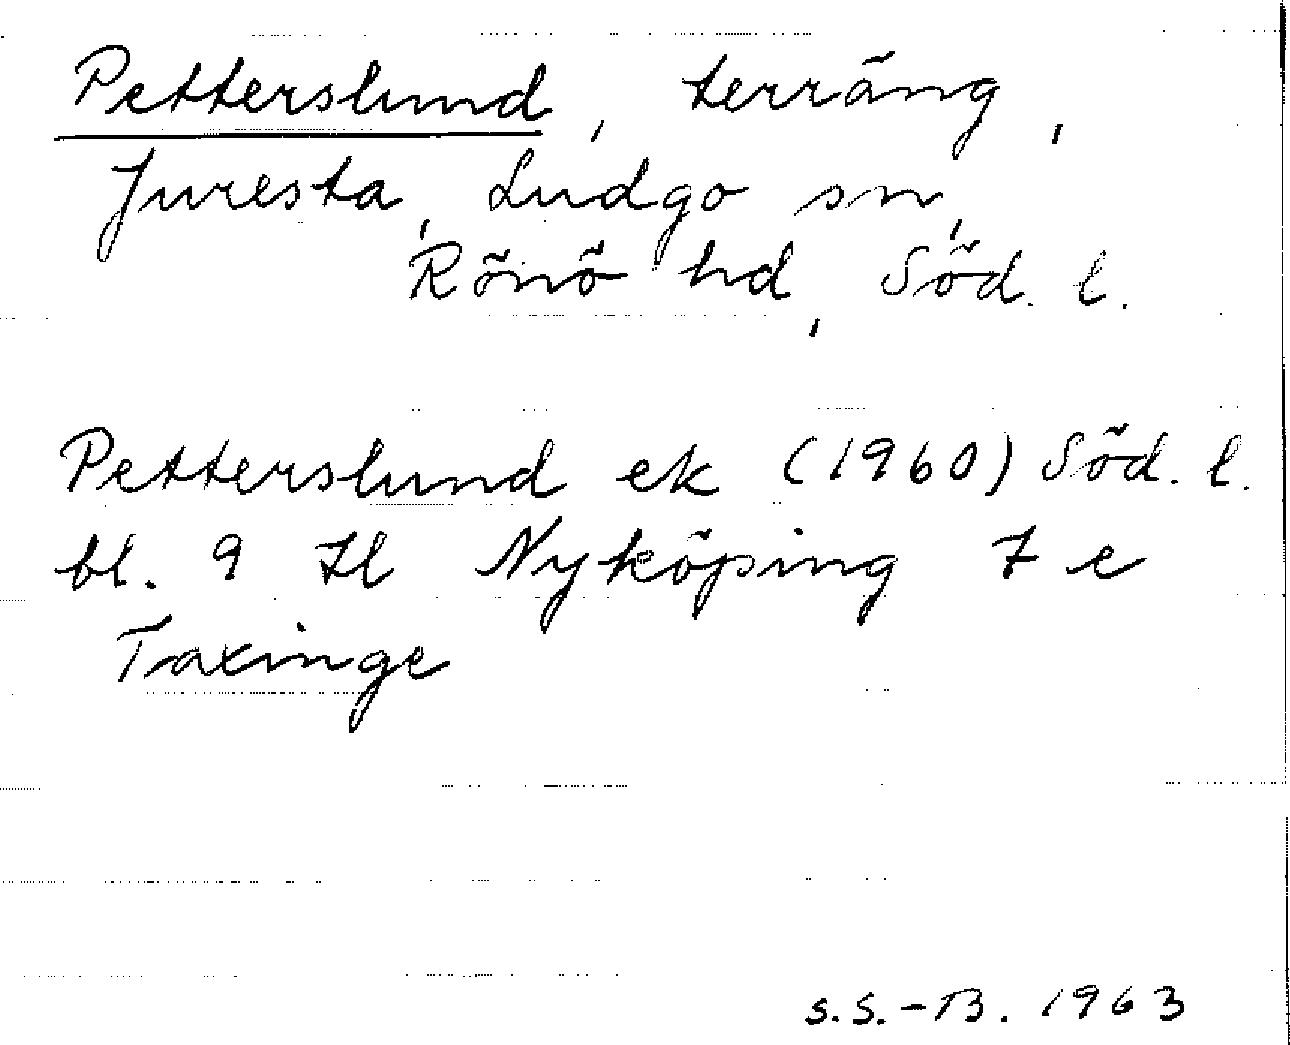 Petterslund, terräng,
Juresta, Ludgo sn,
Rönö hd, Söd. l.
Petterslund ek (1960) Söd. l.
bl. 9 H Nyköping 7 e
Taxinge
S.S.-B. 1963